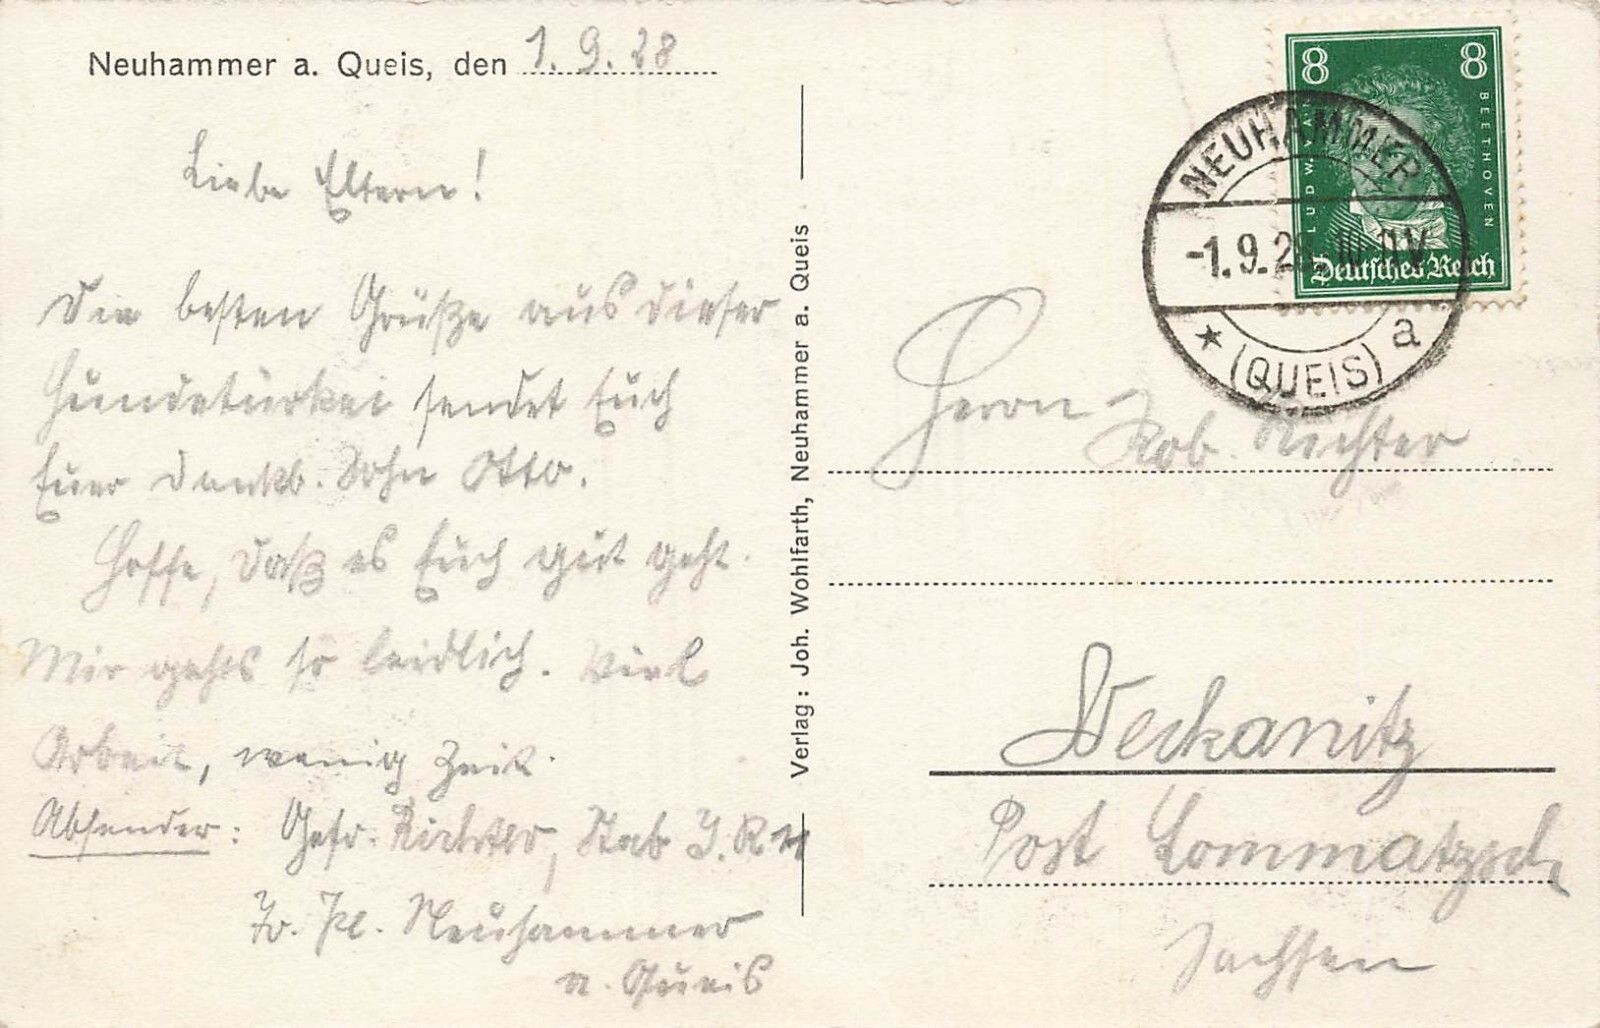 Neuhammer a. Queis, den 1. 9. 28
Liebe Eltern!
Die besten Grüße aus dieser
Hundetürkei sendet Euch
Euer dankb. Sohn Otto.
Hoffe, daß es Euch gut geht.
Mir gehts so leidlich. Viel
Arbeit, wenig Zeit.
Absender: Gefr. Richter, Stab I.R 11
Tr. Pl. Neuhammer
a. Queis
Verlag: Joh. Wohlfarth, Neuhammer a. Queis
8 8
LUDW. VAN BEETHOVEN
Deutsches Reich
NEUHAMMER
-1.9.28.-10 V
(QUEIS) a
Herrn
Rob. Richter
Weckanitz
Post Lommatzsch
Sachsen